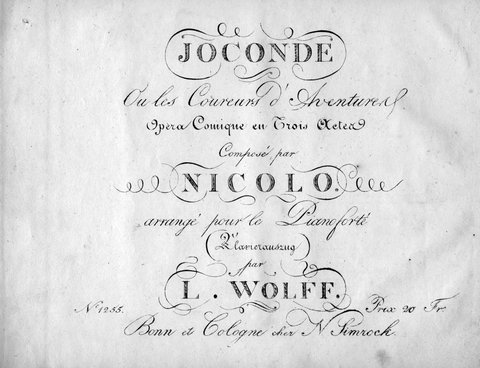 JOCONDE
Ou les Coureurs d'Aventures
Opera Comique en Trois Actes
Composé par
NICOLO.
arrangé pour le Pianoforté
(Klavierauszug)
par
L. WOLFF.
No 1255. Prix 20 Fr.
Bonn et Cologne chez N. Simrock.